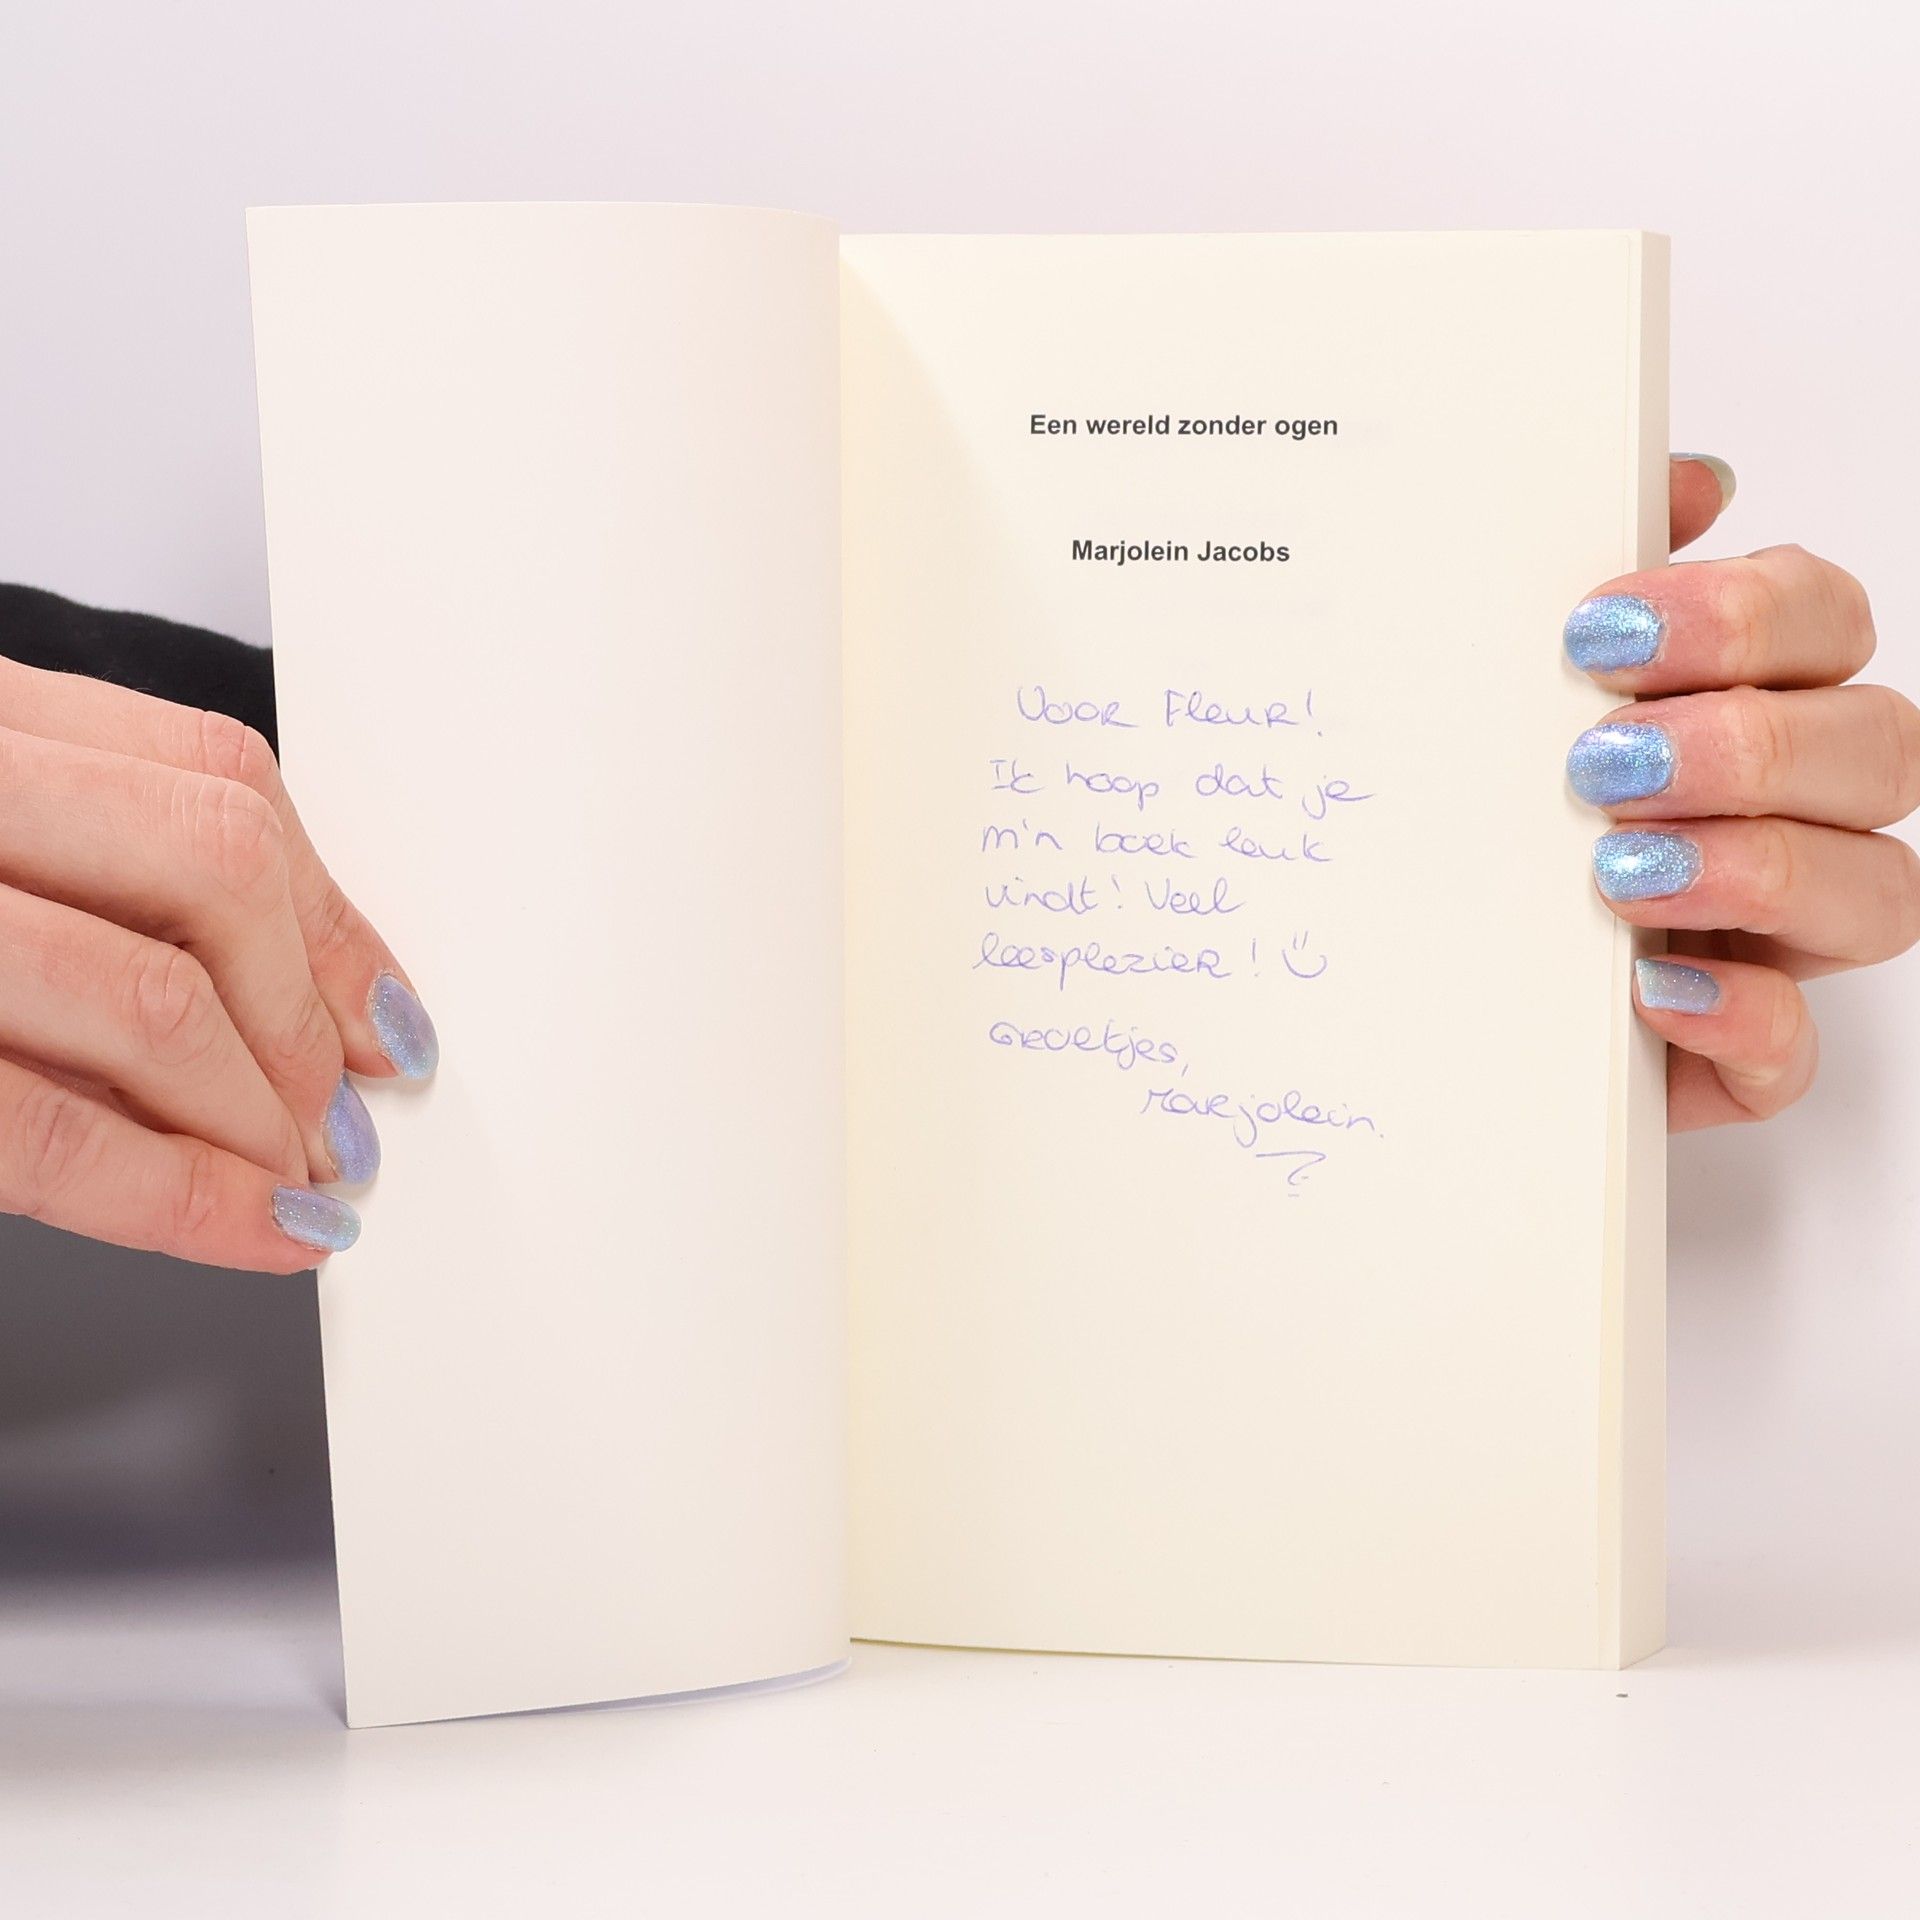 Een wereld zonder ogen
Marjolein Jacobs
Voor Fleur!
Ik hoop dat je
m'n boek leuk
vindt! Veel
leesplezier! :)
Groetjes,
Marjolein.